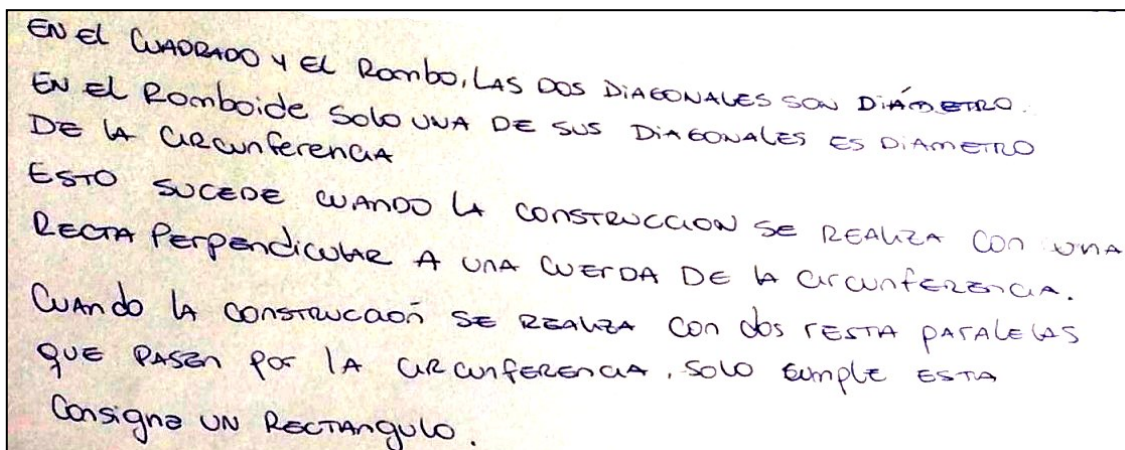 EN El CUADRADO Y El Rombo, LAS DOS DIAGONALES SON DIÁMETRO.
EN El Romboide Solo UNA DE SUS DIAGONALES ES DIAMETRO
DE LA CIRCUNferencia
ESTO SUCEDE CUANDO LA CONSTRUCCION SE REALIZA CON UNA
RECTA Perpendicular A UNA CUERDA DE LA CIRCUNFERENCIA.
CUANdo LA CONSTRUCCIÓN SE REALIZA CON dos RESTA PARALELAS
QUE PASEN POR LA CIRCUNFERENCIA, SOLO CUMPLE ESTA
Consigna UN RECTANGULO.